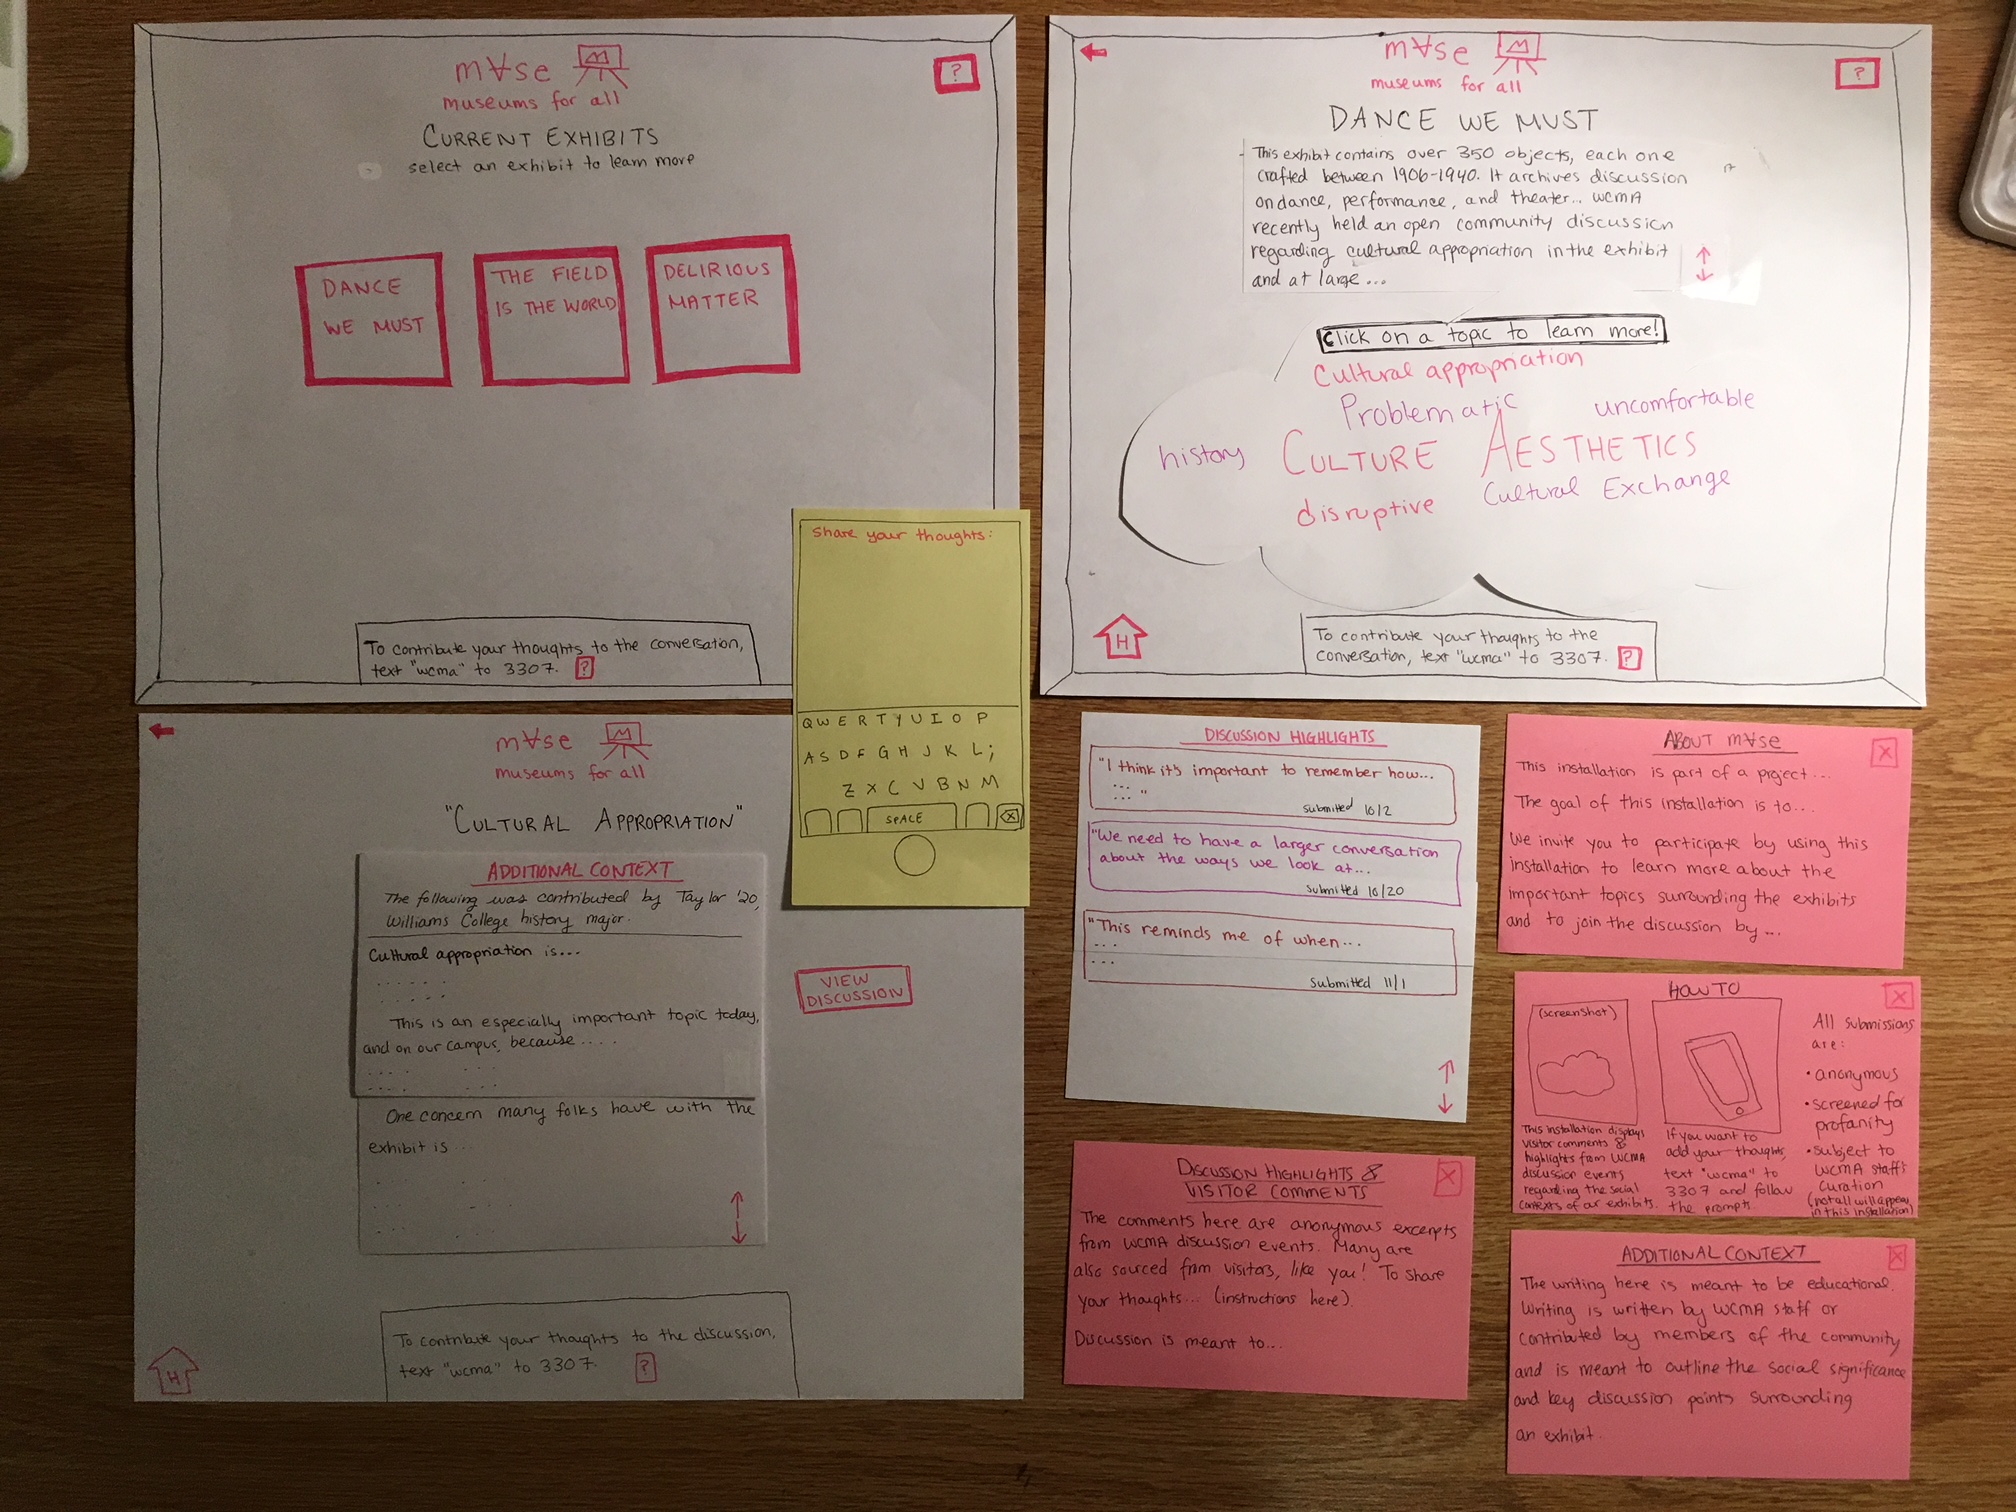 m∀se M
museums for all
?
CURRENT EXHIBITS
select an exhibit to learn more
DANCE
WE MUST
THE FIELD
IS THE WORLD
DELIRIOUS
MATTER
To contribute your thoughts to the conversation,
text "wcma" to 3307. ?
m∀se M
museums for all
?
DANCE WE MUST
This exhibit contains over 350 objects, each one
crafted between 1906-1940. It archives discussion
on dance, performance, and theater... WCMA
recently held an open community discussion
regarding cultural appropriation in the exhibit
and at large...
Click on a topic to learn more!
Cultural appropriation
Problematic uncomfortable
history CULTURE AESTHETICS
disruptive Cultural Exchange
H
To contribute your thoughts to the
conversation, text "wcma" to 3307. ?
Share your thoughts:
Q W E R T Y U I O P
A S D F G H J K L ;
Z X C V B N M
SPACE
m∀se M
museums for all
"CULTURAL APPROPRIATION"
ADDITIONAL CONTEXT
The following was contributed by Taylor '20,
Williams College history major.
Cultural appropriation is...
This is an especially important topic today,
and on our campus, because....
One concern many folks have with the
exhibit is
VIEW
DISCUSSION
H
To contribute your thoughts to the discussion,
text "wcma" to 3307. ?
DISCUSSION HIGHLIGHTS
"I think it's important to remember how...
... "
submitted 10/2
"We need to have a larger conversation
about the ways we look at...
submitted 10/20
"This reminds me of when...
...
...
submitted 11/1
DISCUSSION HIGHLIGHTS &
VISITOR COMMENTS
X
The comments here are anonymous excerpts
from WCMA discussion events. Many are
also sourced from visitors, like you! To share
your thoughts... (instructions here).
Discussion is meant to...
ABOUT m∀se
X
This installation is part of a project...
The goal of this installation is to...
We invite you to participate by using this
installation to learn more about the
important topics surrounding the exhibits
and to join the discussion by...
HOW TO
X
(screenshot)
This installation displays
visitor comments &
highlights from WCMA
discussion events
regarding the social
contexts of our exhibits.
If you want to
add your thoughts,
text "wcma" to
3307 and follow
the prompts.
All submissions
are:
• anonymous
• screened for
profanity
• subject to
WCMA staff's
curation
(not all will appear
in this installation)
ADDITIONAL CONTEXT
X
The writing here is meant to be educational.
Writing is written by WCMA staff or
contributed by members of the community
and is meant to outline the social significance
and key discussion points surrounding
an exhibit.